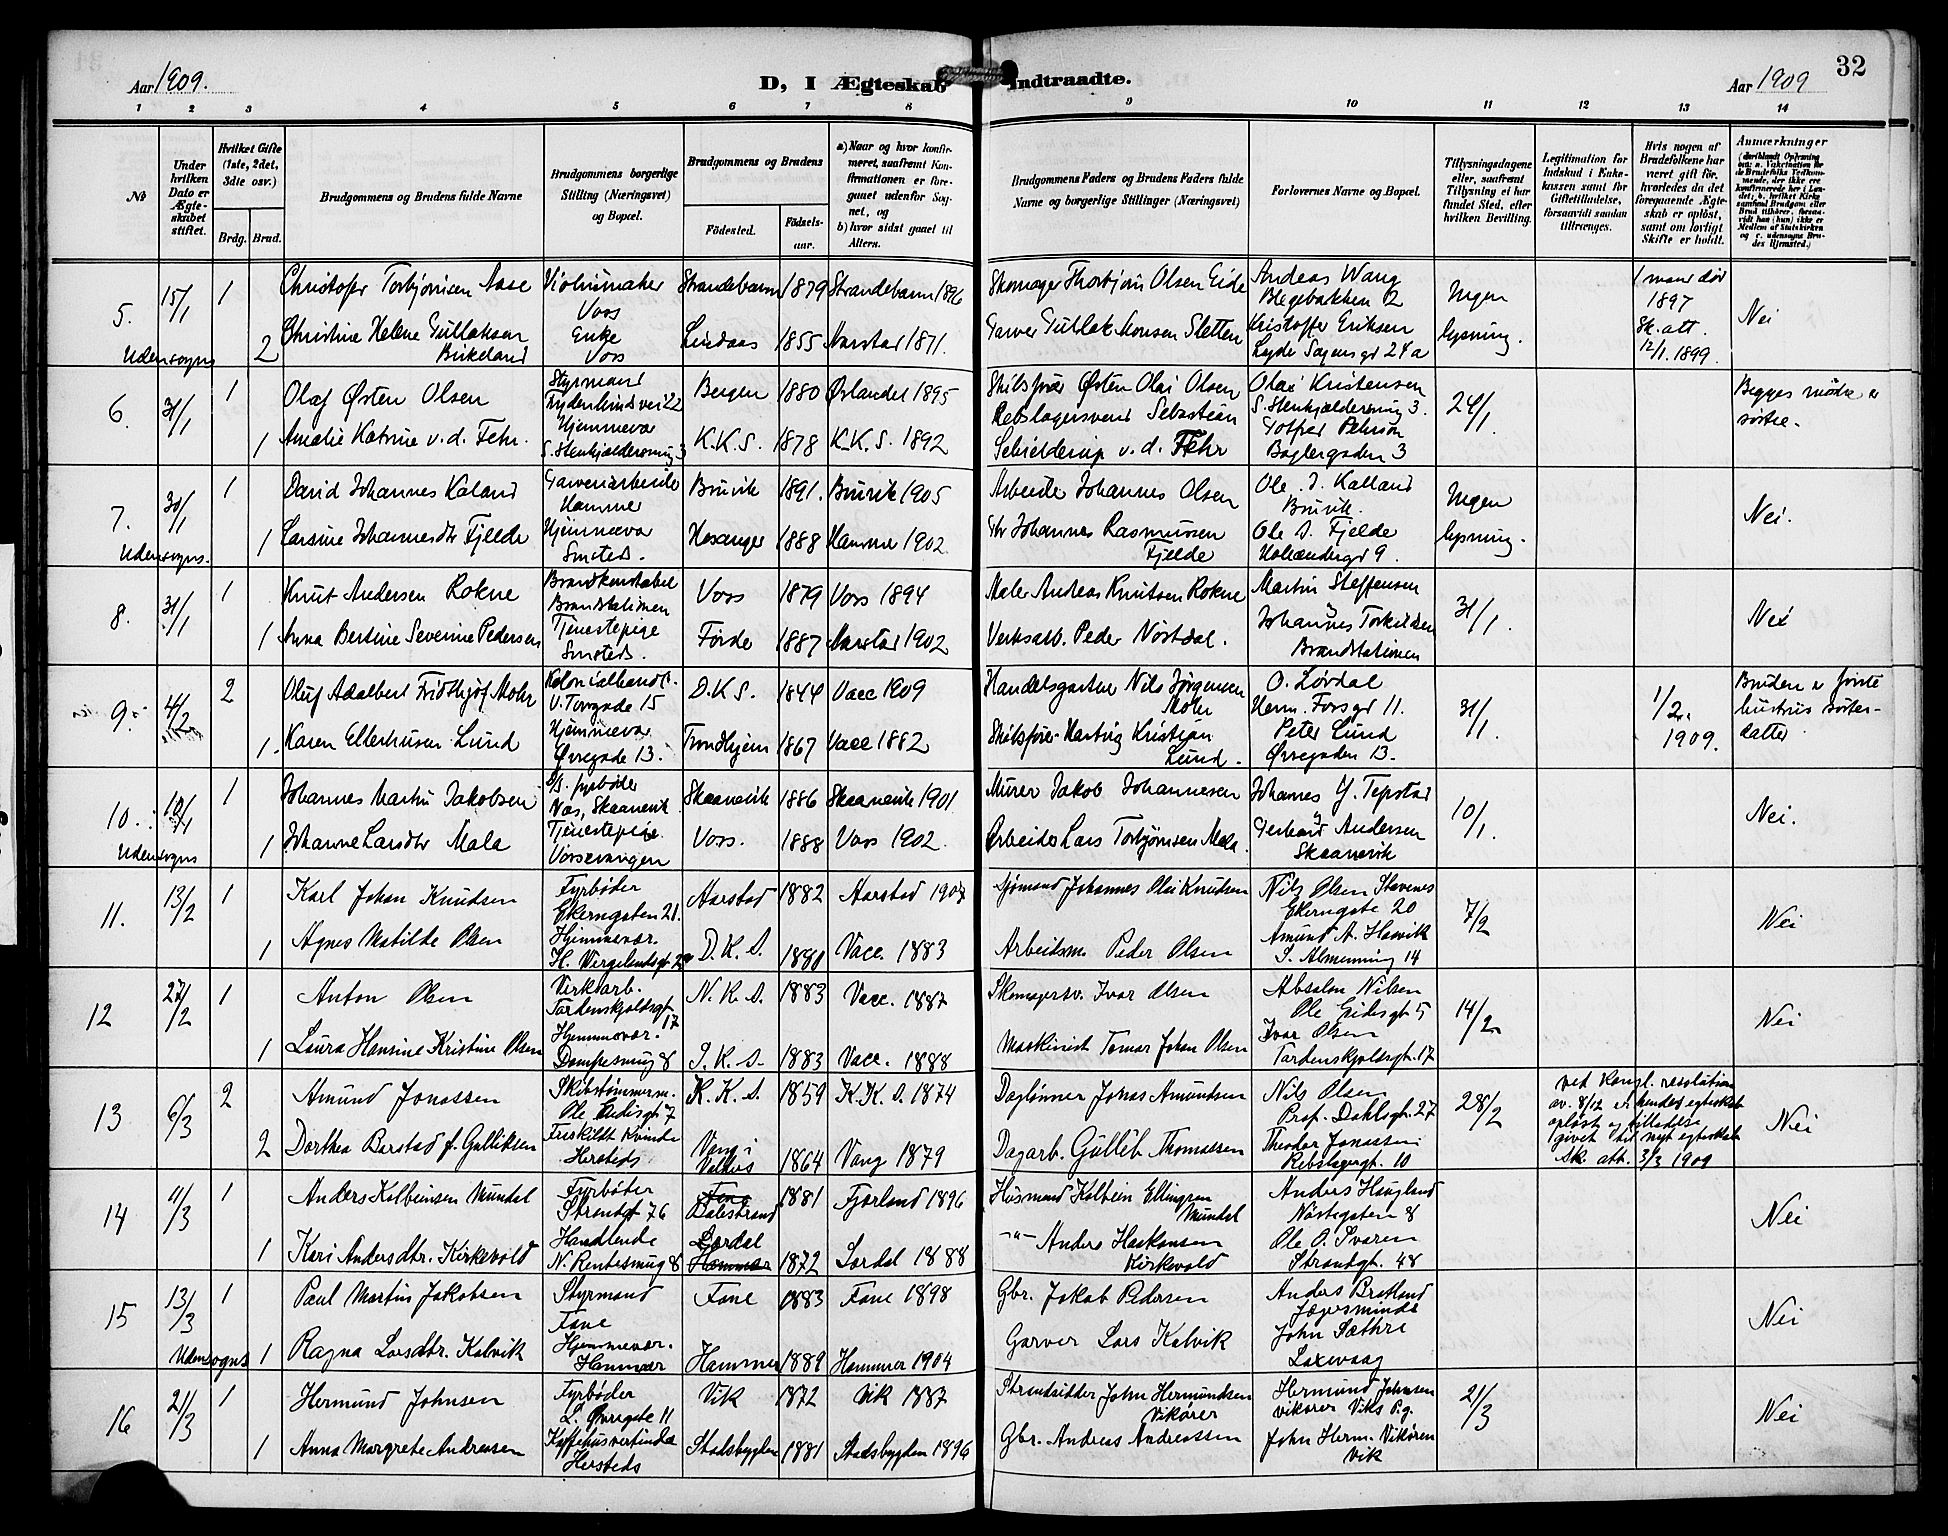 32
Aar 1909.
D, I Ægteskab Indtraadte.
Aar 1909
1 2 3 4 5 6 7 8 9 10 11 12 13 14
№
Under hvilken Dato er Ægteskabet stiftet.
Hvilket Gifte (1ste, 2det, 3die osv.)
Brdg. Brud.
Brudgommens og Brudens fulde Navne
Brudgommens borgerlige Stilling (Næringsvei) og Bopæl.
Brudgommens og Brudens
Fødested.
Fødsels-aar.
a) Naar og hvor konfirmeret, saafremt Konfirmationen er foregaaet udenfor Sognet, og
b) hvor sidst gaaet til Alters.
Brudgommens Faders og Brudens Faders fulde Navne og borgerlige Stillinger (Næringsvei)
Forlovernes Navne og Bopæl.
Tillysningsdagene eller, saafremt Tillysning ei har fundet Sted, efter hvilken Bevilling.
Legitimation for Indskud i Enkekassen samt for Giftetilladelse, forsaavidt saadan tiltrænges.
Hvis nogen af Brudefolkene har været gift før, hvorledes da det foregaaende Ægteskab er opløst, samt om lovligt Skifte er holdt.
Anmærkninger
5. 15/1 1 Christofer Torbjørnsen Aase Violinmaker Voss Strandebarm 1879 Strandebarm 1896 Skomager Thorbjørn Olsen Eide Andreas Wang Blegebakken 2 Ingen lysning. 1 mand død 1897 Sk. att. 12/1. 1899. Nei
Udensogns 2 Christine Helene Gullaksen Birkeland Enke Voss Lindaas 1855 Aarstad 1871. Garver Gullak Monsen Sletten Kristoffer Eriksen Lyder Sagens gt 24 a
6. 31/1 1 Olaf Østen Olsen Styrmand Bergen 1880 Ørlandet 1895 Skibsfører Østen Olai Olsen Olai Kristensen S. Stenkjeldersmug 3. 24/1. Begges mødre er søstre.
1 Amalie Katrine v. d. Fehr. Hjemmevær S. Stenkjeldersmug 3 K.K.S. 1878 K.K.S. 1892 Rebslagersvend Sebastian Schielderup v. d. Fehr Gotfred Peterson Baglergaden 3
7. 30/1 1 David Johannes Kaland Garveriarbeider Hammer Bruvik 1891. Bruvik 1905 Arbeider Johannes Olsen Ole J. Kalland Bruvik. Ingen lysning. Nei.
Udensogns. 1 Larsine Johannesdtr Fjelde Hjemmevær Smsteds. Hosanger 1888 Hammer 1902. Johannes Rasmussen Fjelde Ole J. Fjelde Hollændergt 9.
8. 31/1 1 Knut Andersen Rokne Brandkonstabel Brandstationen Voss 1879 Voss 1894 Maler Andreas Knutsen Rokne Martin Steffensen 31/1. Nei
1 Anna Bertine Severine Pedersen Tjenestepige Smsteds. Førde 1887 Aarstad 1902 Verksarb. Peder Nøstdal. Johannes Torkildsen Brandstationen
9. 4/2 2 Oluf Adalbert Fridthjof Mohr Kolonialhandl. V. Torvgade 15 D.K.S. 1844 Vacc 1909 Handelsgartner Nils Jørgensen Mohr O. Lørdal Herm. Fossgt 11. 31/1. 1/2. 1909. Bruden er første hustrus søsterdatter
1. Karen Ellerhusen Lund Hjemmevær Øvregade 13. Trondhjem 1867 Vacc 1882 Skibsfører Hartvig Kristian Lund. Peter Lund Øvregaden 13.
10. 10/1 1 Johannes Martin Jakobsen D/S. fyrbøder Næs, Skaanevik Skaanevik 1886 Skaanevik 1901. Murer Jakob Johannesen Johannes Y. Tepstad 10/1. Nei.
Udensogns 1 Johanne Larsdtr Mala Tjenestepige. Vossevangen Voss. 1888 Voss 1902. Arbeider Lars Torbjørnsen Mala. Gerhard Andersen Skaanevik
11. 13/2 1 Karl Johan Knudsen Fyrbøder Ekerngaten 21. Aarstad 1882 Aarstad 1907 Sjømand Johannes Olai Knudsen Nils Olsen Stavenes Ekerngate 20 7/2 Nei
1 Agnes Matilde Olsen Hjemmevær. H. Vergelandsgt. D.K.S. 1880 Vacc. 1883 Arbeidsm. Peder Olsen Amund A. Hosvik S. Almenning 14
12 27/2 1 Anton Olsen Virksarb. Tordenskjoldsgt. 17 N.K.S. 1883 Vacc. 1887 Skomagersv. Ivar Olsen Absalon Nilsen Ole Eidesgt 5 14/2 Nei
1 Laura Hansine Kristine Olsen Hjemmevær. Dampesmug 8 J.K.S. 1883 Vacc. 1888 Maskinist Tomas Johan Olsen Ivar Olsen Tordenskjoldsgt. 17
13 6/3 2 Amund Jonassen Skibstømmerm. Ole Eidesgt 7 K.K.S. 1859 K.K.S. 1874 Dagløner Johas Amundsen Nils Olsen Prof. Dahlsgt. 27 28/2 ved Kongl. resolution av. 8/12 er hendes egteskab opløst og tilladelse givet til nyt egteskab Sk. att. 3/3 1909 Nei
2 Dorthea Barstad f. Gulliksen Fraskildt Kvinde Hersteds Vang i Valdres 1864 Vang 1879 Dagarb. Gulleb. Thomassen Theodor Jonassen Rebslagergt. 10
14 4/3 1 Anders Kolbeinsen Mundal Fyrbøder Strandgt 76 Balestrand 1881 Fjærland 1896 Husmand Kolbein Ellingsen Mundal Anders Haugland Nøstegaten 8 Nei
1 Kari Andersdtr. Kirkevold Handlende N. Rentesmug 8 Lærdal 1872 Lærdal 1888 -"- Anders Haakonsen Kirkevold Ole O. Svaren Strandgt. 48
15 13/3 1 Paul Martin Jakobsen Styrmand Fane Fane 1883 Fane 1898 Gbr. Jakob Pedersen Anders Bratland Jægersminde Nei
Udensogns 1 Ragna Larsdtr. Kalvik Hjemmevær. Hammer Hammer 1889 Hammer 1904 Garver Lars Kalvik John Sæthre Laxevaag
16 21/3 1 Hermund Johnsen Fyrbøder L. Øvregate 11 Vik 1872 Vik 1887 Strandsidder John Hermundsen Vikører Hermund Johnsen Vikører Viks P.g. 21/3 Nei
1 Anna Margrete Andreasen Kaffehusvertinde Hersteds Stadsbygden 1881 Stadsbygden 1896 Gbr. Andreas Andreassen John Herm. Vikøren Vik